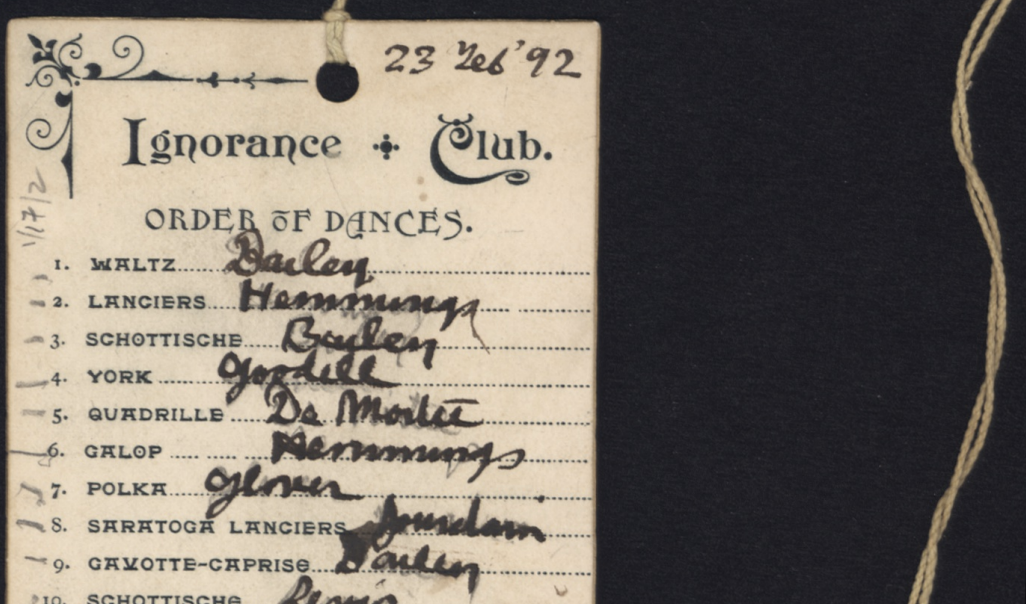 23 Feb '92
Ignorance Club.
ORDER OF DANCES.
1/17/2
1. WALTZ Dailey
2. LANCIERS Hemmings
3. SCHOTTISCHE Bayley
4. YORK Goodell
5. QUADRILLE De
6. GALOP Hemmings
7. POLKA Glover
8. SARATOGA LANCIERS Jourdain
9. GAVOTTE-CAPRISE Dailey
10. SCHOTTISCHE Lewis